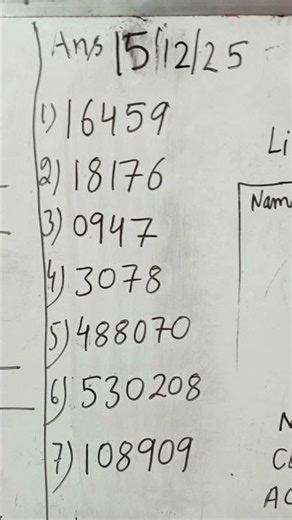 Ans 15/12/25
1) 16459
2) 18176
3) 0947
4) 3078
5) 488070
6) 530208
7) 108909
Li
Nam
N
C
AC